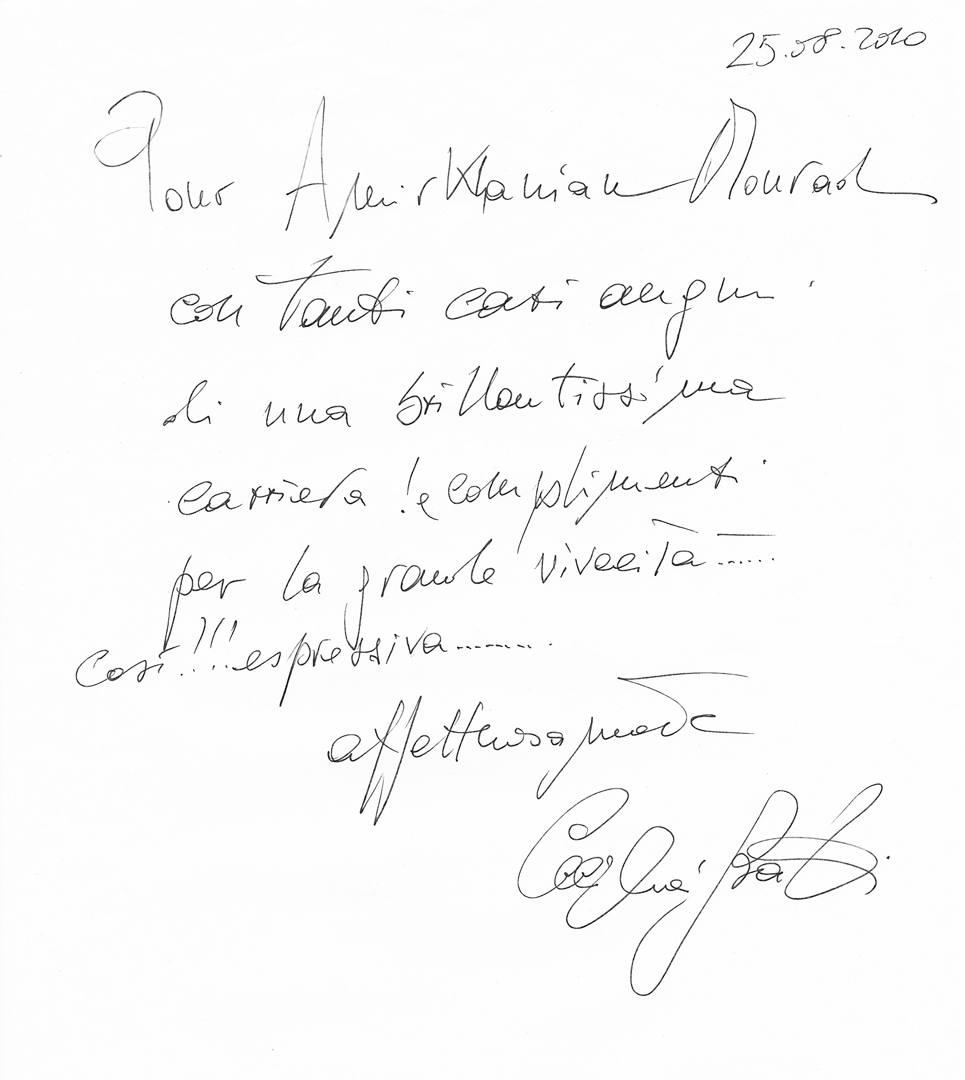 25.08.2010
Pour Amirkhanian Mourad
con Tanti cari auguri
di una brillantissima
carriera ! e complimenti
per la grande vivacità......
Così !!!...espressiva.........
affettuosamente